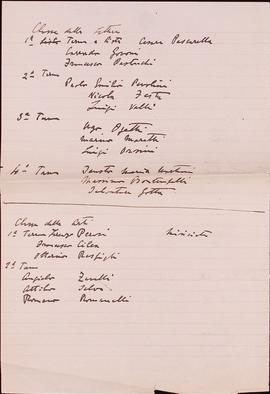 Classe delle Lettere
1ª Terna Cesare Pascarella
Corrado Govoni
Francesco Pastonchi
2ª Terna
Paolo Emilio Pavolini
Nicola Festa
Luigi Valli
3ª Terna
Ugo Ojetti
Marino Moretti
Luigi Orsini
4ª Terna Fausto Maria Martini
Massimo Bontempelli
Salvator Gotta
Classe delle Arti
1ª Terna Lorenzo Perosi
Francesco Cilea
Ottorino Respighi
2ª Terna
Angelo Zanelli
Attilio Selva
Romano Romanelli